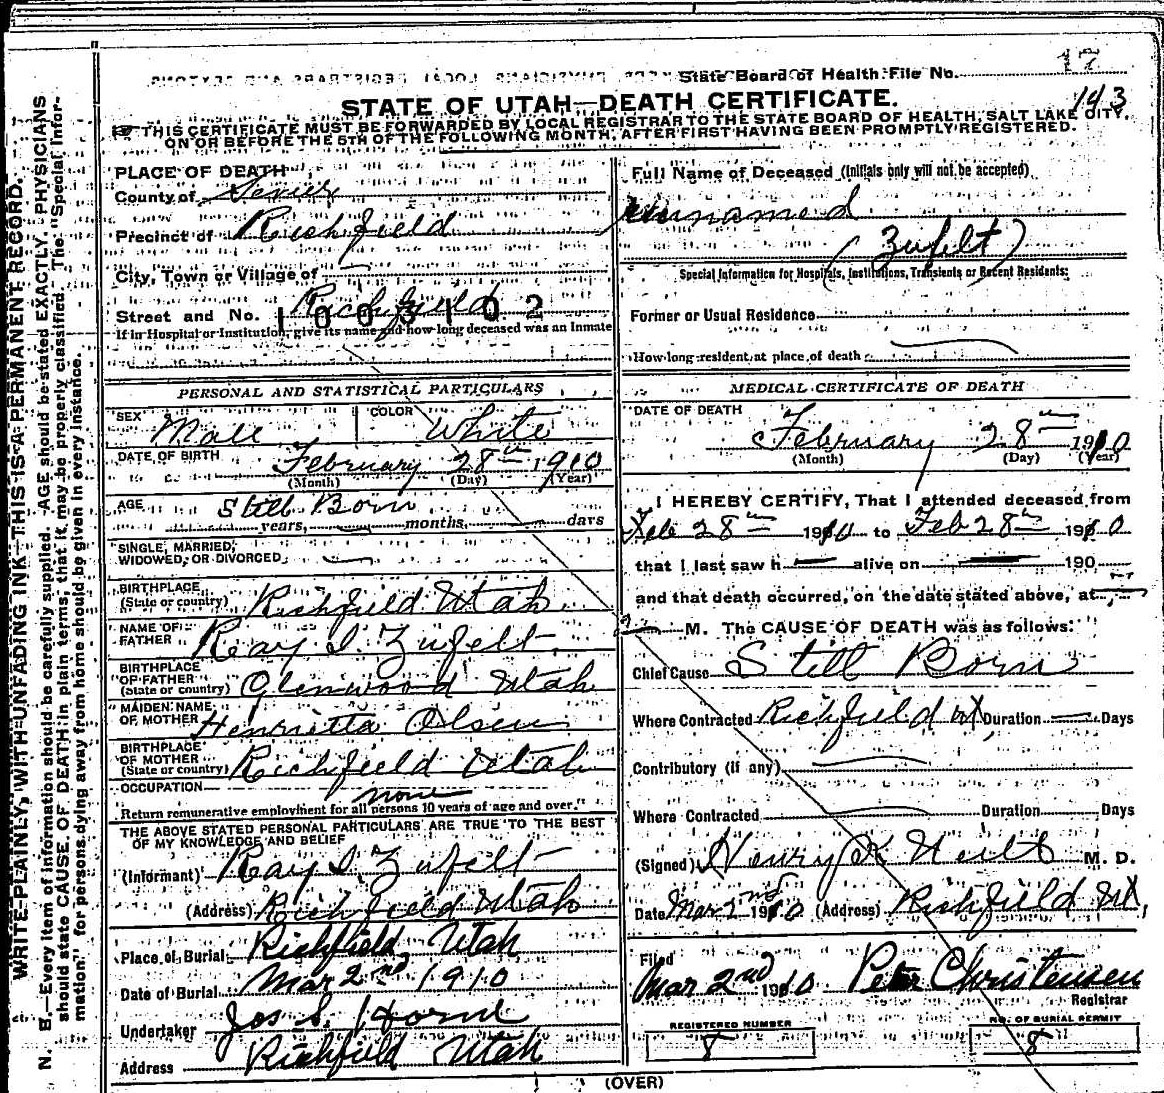 State Board of Health File No. 17
143
STATE OF UTAH—DEATH CERTIFICATE.
THIS CERTIFICATE MUST BE FORWARDED BY LOCAL REGISTRAR TO THE STATE BOARD OF HEALTH, SALT LAKE CITY,
ON OR BEFORE THE 5TH OF THE FOLLOWING MONTH, AFTER FIRST HAVING BEEN PROMPTLY REGISTERED.
WRITE PLAINLY, WITH UNFADING INK—THIS IS A PERMANENT RECORD.
N. B.—Every item of information should be carefully supplied. AGE should be stated EXACTLY. PHYSICIANS
should state CAUSE OF DEATH in plain terms, that it may be properly classified. The "Special Infor-
mation" for persons dying away from home should be given in every instance.
PLACE OF DEATH
County of Sevier
Precinct of Richfield
City, Town or Village of
Street and No. Richfield
1003102
If in Hospital or Institution, give its name and how long deceased was an Inmate
Full Name of Deceased (Initials only will not be accepted)
unnamed
(Zufelt)
Special Information for Hospitals, Institutions, Transients or Recent Residents:
Former or Usual Residence
How long resident at place of death
PERSONAL AND STATISTICAL PARTICULARS
SEX Male COLOR White
DATE OF BIRTH February 28th 1910
(Month) (Day) (Year)
AGE Still Born
years, months, days
SINGLE, MARRIED,
WIDOWED, OR DIVORCED
BIRTHPLACE
(State or country) Richfield Utah
NAME OF
FATHER Ray I. Zufelt
BIRTHPLACE
OF FATHER
(State or country) Glenwood Utah
MAIDEN NAME
OF MOTHER Henrietta Olsen
BIRTHPLACE
OF MOTHER
(State or country) Richfield Utah
OCCUPATION
none
Return remunerative employment for all persons 10 years of age and over.
THE ABOVE STATED PERSONAL PARTICULARS ARE TRUE TO THE BEST
OF MY KNOWLEDGE AND BELIEF
(Informant) Ray I. Zufelt
(Address) Richfield Utah
Place of Burial Richfield, Utah
Date of Burial Mar 2nd 1910
Undertaker Jos S. Horne
Address Richfield Utah
MEDICAL CERTIFICATE OF DEATH
DATE OF DEATH
February 28th 1910
(Month) (Day) (Year)
I HEREBY CERTIFY, That I attended deceased from
Feb 28th 1910 to Feb 28th 1910
that I last saw h alive on 190
and that death occurred, on the date stated above, at
M. The CAUSE OF DEATH was as follows:
Chief Cause Still Born
Where Contracted Richfield Ut Duration Days
Contributory (if any)
Where Contracted Duration Days
(Signed) Henry K Neilt M. D.
Date Mar 2nd 1910 (Address) Richfield Ut,
Filed
Mar 2nd 1910 Peter Christensen
Registrar
REGISTERED NUMBER
8
NO. OF BURIAL PERMIT
8
(OVER)